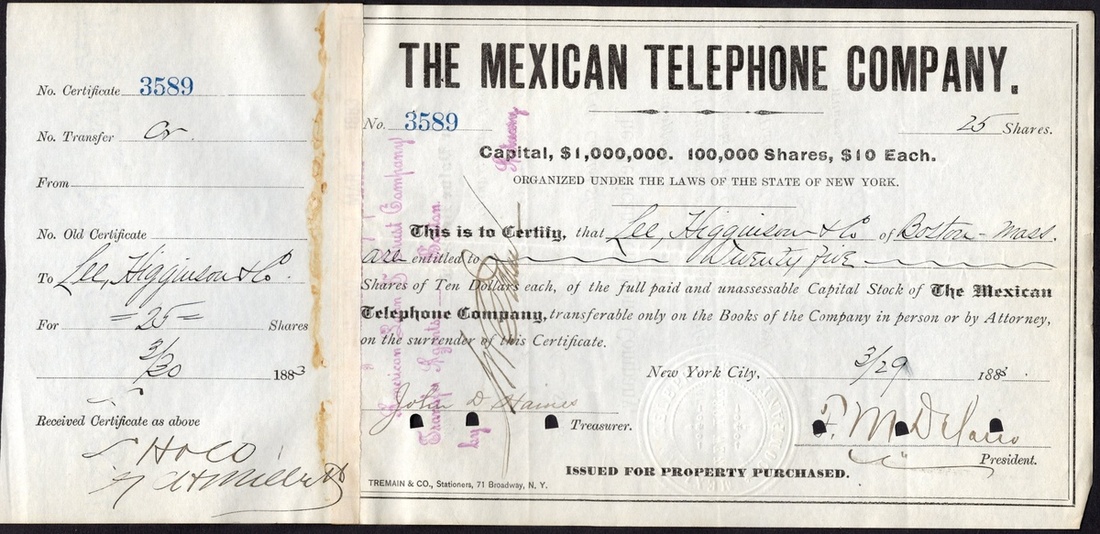 No. Certificate 3589
No. Transfer or
From
No. Old Certificate
To Lee, Higginson & Co.
For =25= Shares
3/30 1883
Received Certificate as above
THE MEXICAN TELEPHONE COMPANY.
No. 3589 25 Shares.
Capital, $1,000,000. 100,000 Shares, $10 Each.
ORGANIZED UNDER THE LAWS OF THE STATE OF NEW YORK.
This is to Certify, that Lee, Higginson & Co of Boston - Mass.
are entitled to Twenty Five
Shares of Ten Dollars each, of the full paid and unassessable Capital Stock of The Mexican
Telephone Company, transferable only on the Books of the Company in person or by Attorney,
on the surrender of this Certificate.
New York City, 3/29 1883.
John D Haines
Treasurer.
President.
ISSUED FOR PROPERTY PURCHASED.
TREMAIN & CO., Stationers, 71 Broadway, N. Y.
American Loan & Trust Company
Transfer Agents
by